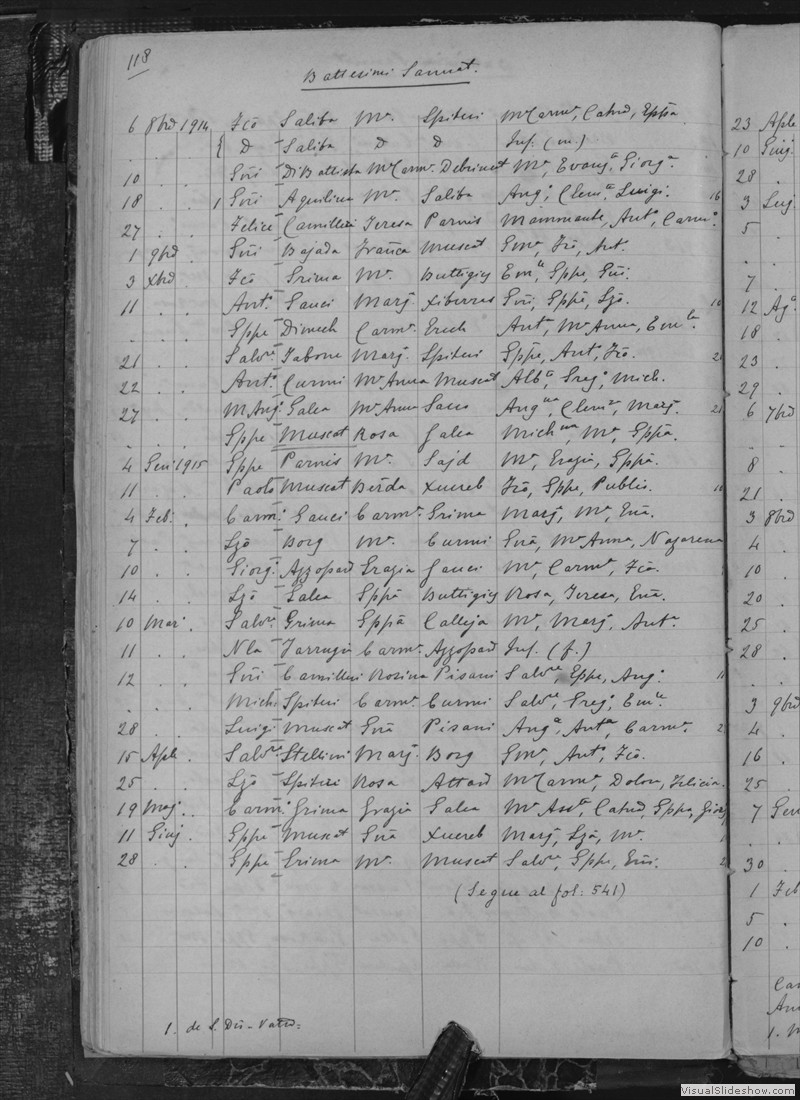 118
Battesimi Sannat.
6 8brē 1914 Fcō Saliba Mª. Spiteri Mª Carmª, Catnā, Gppā.
. . . { D Saliba D D Inf. (m.)
10 . . Gūi Di Battista Mª Carmª. Debrincat Mª, Evangª, Giorgª
18 . . 1 Gūi Aquilina Mª. Saliba Angº, Clemª, Luigi.
27 . . Felice Camilleri Teresa Parnis Antº, Carmº.
1 9brē . Gūi Bajada Franca Muscat Fcō, Ant.
3 Xbrē Fcō Grima Mª. Buttigieg Emª, Gppe, Gūi.
11 . . Antº. Gauci Marj. Xiberras Gūi, Gppe, Ljō.
. . . Gppe Dimech Carmª. Erich Antª, Mª Anna, Emlª.
21 . . Salvre Tabone Marj. Spiteri Gppe, Antº, Fcō.
22 . . Antº. Curmi Mª Anna Muscat Albº, Gregº, Mich.
27 . . M Angº. Galea Mª Anna Saco Angna, Clemª, Marj.
. . . Gppe Muscat Rosa Galea Michna, Mª, Gppā.
4 Gen 1915 Gppe Parnis Mª. Sajd Mª, Grazia, Gppā.
11 . . Paolo Muscat Berda Xuereb Fcō, Gppe, Publio.
4 Feb. . Carmº. Gauci Carmª. Grima Marj, Mª,
7 . . Ljō Borg Mª. Curmi Mª Anna, Nazarena
10 . . Giorgº. Azzopard Grazia Gauci Mª, Carmª, Fcā.
14 . . Ljō Galea Gppā Buttigieg Rosa, Teresa,
10 Marº. . Salvre Grima Gppā Calleja Mª, Marj, Antª
11 . . Nla Farrugia Carmª. Azzopard Inf. (f.)
12 . . Gūi Camilleri Rosina Pisani Salvre, Gppe, Angº.
. . . Mich Spiteri Carmª. Curmi Salvre, Gregº, Emle
28 . . Luigi Muscat Pisani Angª, Antª, Carmª.
15 Aple . Salvre Stellini Marj. Borg Antº, Fcō.
25 . . Ljō Spiteri Rosa Attard Mª Carmª, Dolor, Felicia.
19 Magº . Carmº. Grima Grazia Galea Mª Astª, Catnā, Gppa, Giorg
11 Giug . Gppe Muscat Xuereb Marj, Ljā, Mª.
28 . . Gppe Grima Mª. Muscat Salvre, Gppe,
(Segue al fol: 541)
1. de S.
23 Aple
10 Giug.
28
3 Lug
5
7
12 Agº
18
23
29
6 7brē
8
21
3 8brē
4
10
20
25
28
3 9brē
4
16
25
7 Gen
30
1 Feb
5
10
VisualSlideshow.com